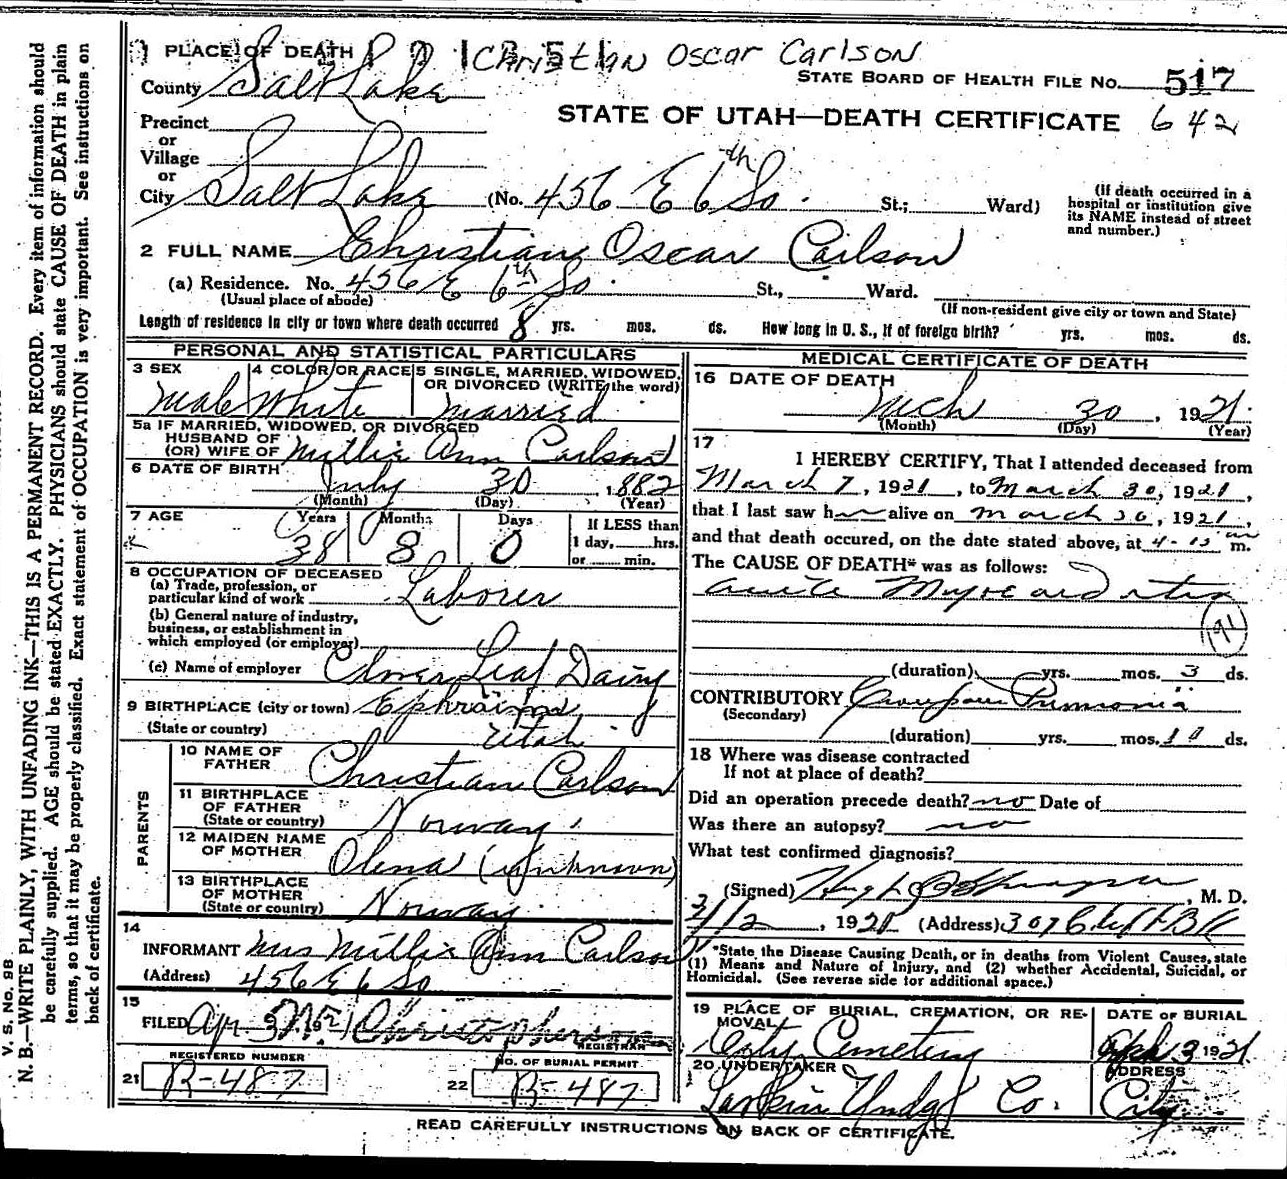 Christian Oscar Carlson
1 PLACE OF DEATH
STATE BOARD OF HEALTH FILE No. 517
County Salt Lake
STATE OF UTAH—DEATH CERTIFICATE 642
Precinct
or
Village
or
City Salt Lake (No. 456 E 6th So. St.; Ward)
(If death occurred in a hospital or institution give its NAME instead of street and number.)
2 FULL NAME Christian Oscar Carlson
(a) Residence. No. 456 E 6th So. St., Ward.
(Usual place of abode) (If non-resident give city or town and State)
Length of residence in city or town where death occurred 8 yrs. mos. ds. How long in U. S., if of foreign birth? yrs. mos. ds.
PERSONAL AND STATISTICAL PARTICULARS
3 SEX Male
4 COLOR OR RACE White
5 SINGLE, MARRIED, WIDOWED, OR DIVORCED (WRITE the word) Married
5a IF MARRIED, WIDOWED, OR DIVORCED
HUSBAND OF
(OR) WIFE OF Millie Ann Carlson
6 DATE OF BIRTH July 30, 1882
(Month) (Day) (Year)
7 AGE Years 38 Months 8 Days 0
If LESS than
1 day, hrs.
or min.
8 OCCUPATION OF DECEASED
(a) Trade, profession, or
particular kind of work Laborer
(b) General nature of industry,
business, or establishment in
which employed (or employer)
(c) Name of employer Clover Leaf Dairy
9 BIRTHPLACE (city or town) Ephraim,
(State or country) Utah
PARENTS
10 NAME OF
FATHER Christian Carlson
11 BIRTHPLACE
OF FATHER
(State or country) Norway.
12 MAIDEN NAME
OF MOTHER Olena (unknown)
13 BIRTHPLACE
OF MOTHER
(State or country) Norway.
14
INFORMANT Mrs Millie Ann Carlson
(Address) 456 E 6 So
15
FILED Apr 3 1921 Christopherson
REGISTRAR
REGISTERED NUMBER
21 B-487
NO. OF BURIAL PERMIT
22 B-487
MEDICAL CERTIFICATE OF DEATH
16 DATE OF DEATH
Mch 30, 1921
(Month) (Day) (Year)
17
I HEREBY CERTIFY, That I attended deceased from
March 7, 1921, to March 30, 1921,
that I last saw h alive on March 30, 1921,
and that death occured, on the date stated above, at 4-15 am m.
The CAUSE OF DEATH* was as follows:
Acute Myocarditis
(duration) yrs. mos. 3 ds.
CONTRIBUTORY Croupous Pneumonia
(Secondary)
(duration) yrs. mos. ds.
18 Where was disease contracted
If not at place of death?
Did an operation precede death? no Date of
Was there an autopsy? no
What test confirmed diagnosis?
(Signed) , M. D.
4/2, 1921 (Address) 307
*State the Disease Causing Death, or in deaths from Violent Causes, state
(1) Means and Nature of Injury, and (2) whether Accidental, Suicidal, or
Homicidal. (See reverse side for additional space.)
19 PLACE OF BURIAL, CREMATION, OR RE-
MOVAL City Cemetery
DATE OF BURIAL
3 1921
20 UNDERTAKER
Larkin Undg Co.
ADDRESS
City
READ CAREFULLY INSTRUCTIONS ON BACK OF CERTIFICATE.
V. S. No. 98
N. B.—WRITE PLAINLY, WITH UNFADING INK—THIS IS A PERMANENT RECORD. Every item of information should
be carefully supplied. AGE should be stated EXACTLY. PHYSICIANS should state CAUSE OF DEATH in plain
terms, so that it may be properly classified. Exact statement of OCCUPATION is very important. See instructions on
back of certificate.